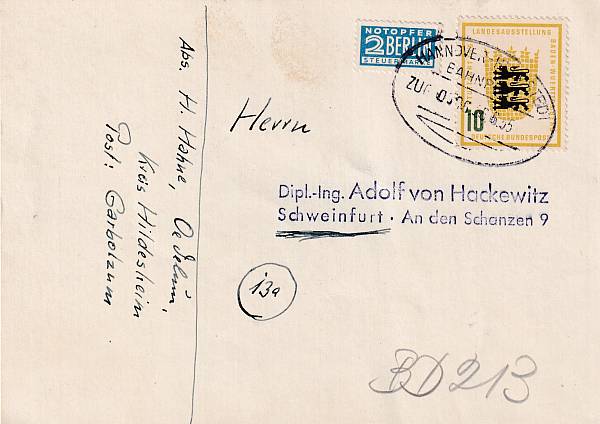 NOTOPFER
2 BERLIN
STEUERMARKE
LANDESAUSSTELLUNG
BADEN
10
DEUTSCHE BUNDESPOST
HANNOVER
BAHNPOST
ZUG
Herrn
Dipl.-Ing. Adolf von Hackewitz
Schweinfurt · An den Schanzen 9
13a
BD 213
Abs. H. Hahne, Oedelum,
Kreis Hildesheim
Post: Garbolzum